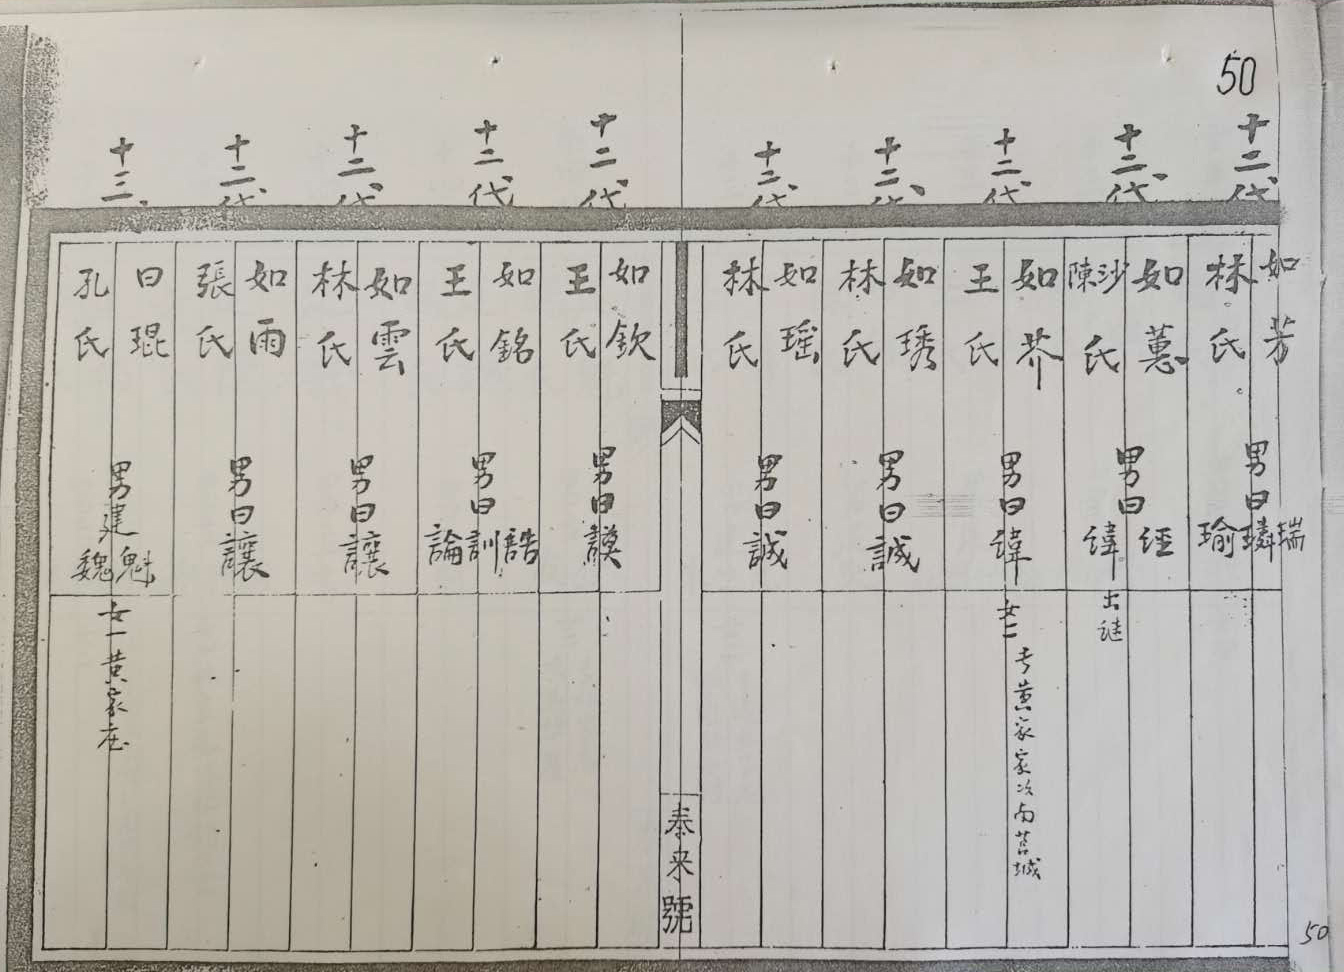 50
十二代
如芳
林氏
男曰瑞璘瑜
十二代
如蕙
沙陳氏
男曰經緯
出
十二代
如芥
王氏
男曰緯
女二
黄家家次南莒城
十二代
如琇
林氏
男曰誠
十二代
如瑶
林氏
男曰誠
泰来號
十二代
如欽
王氏
男曰謨
十二代
如銘
王氏
男曰誥訓論
十二代
如雲
林氏
男曰讓
十二代
如雨
張氏
男曰讓
十三
曰琨
孔氏
男建魁魏
女一黄家庄
50